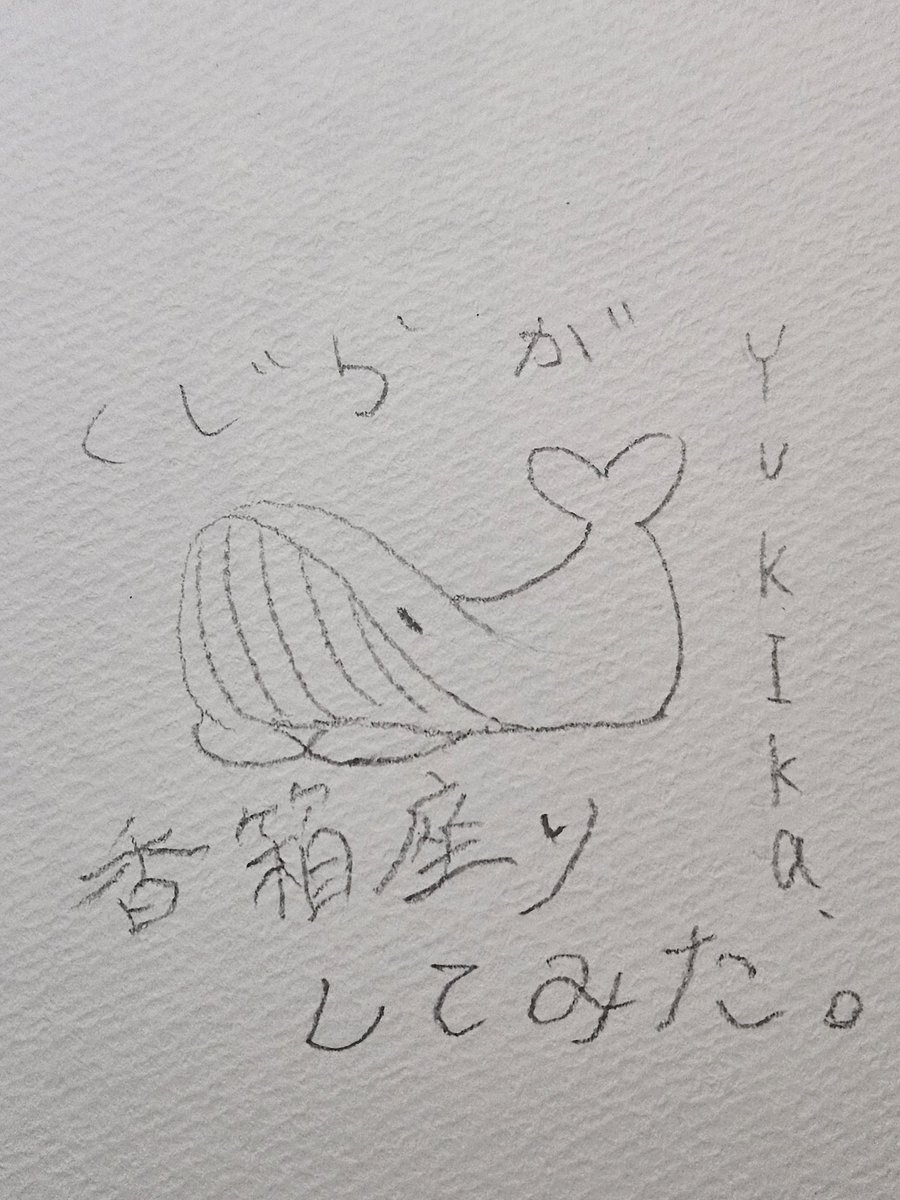 くじらが
香箱座り
してみた。
YuKIka.